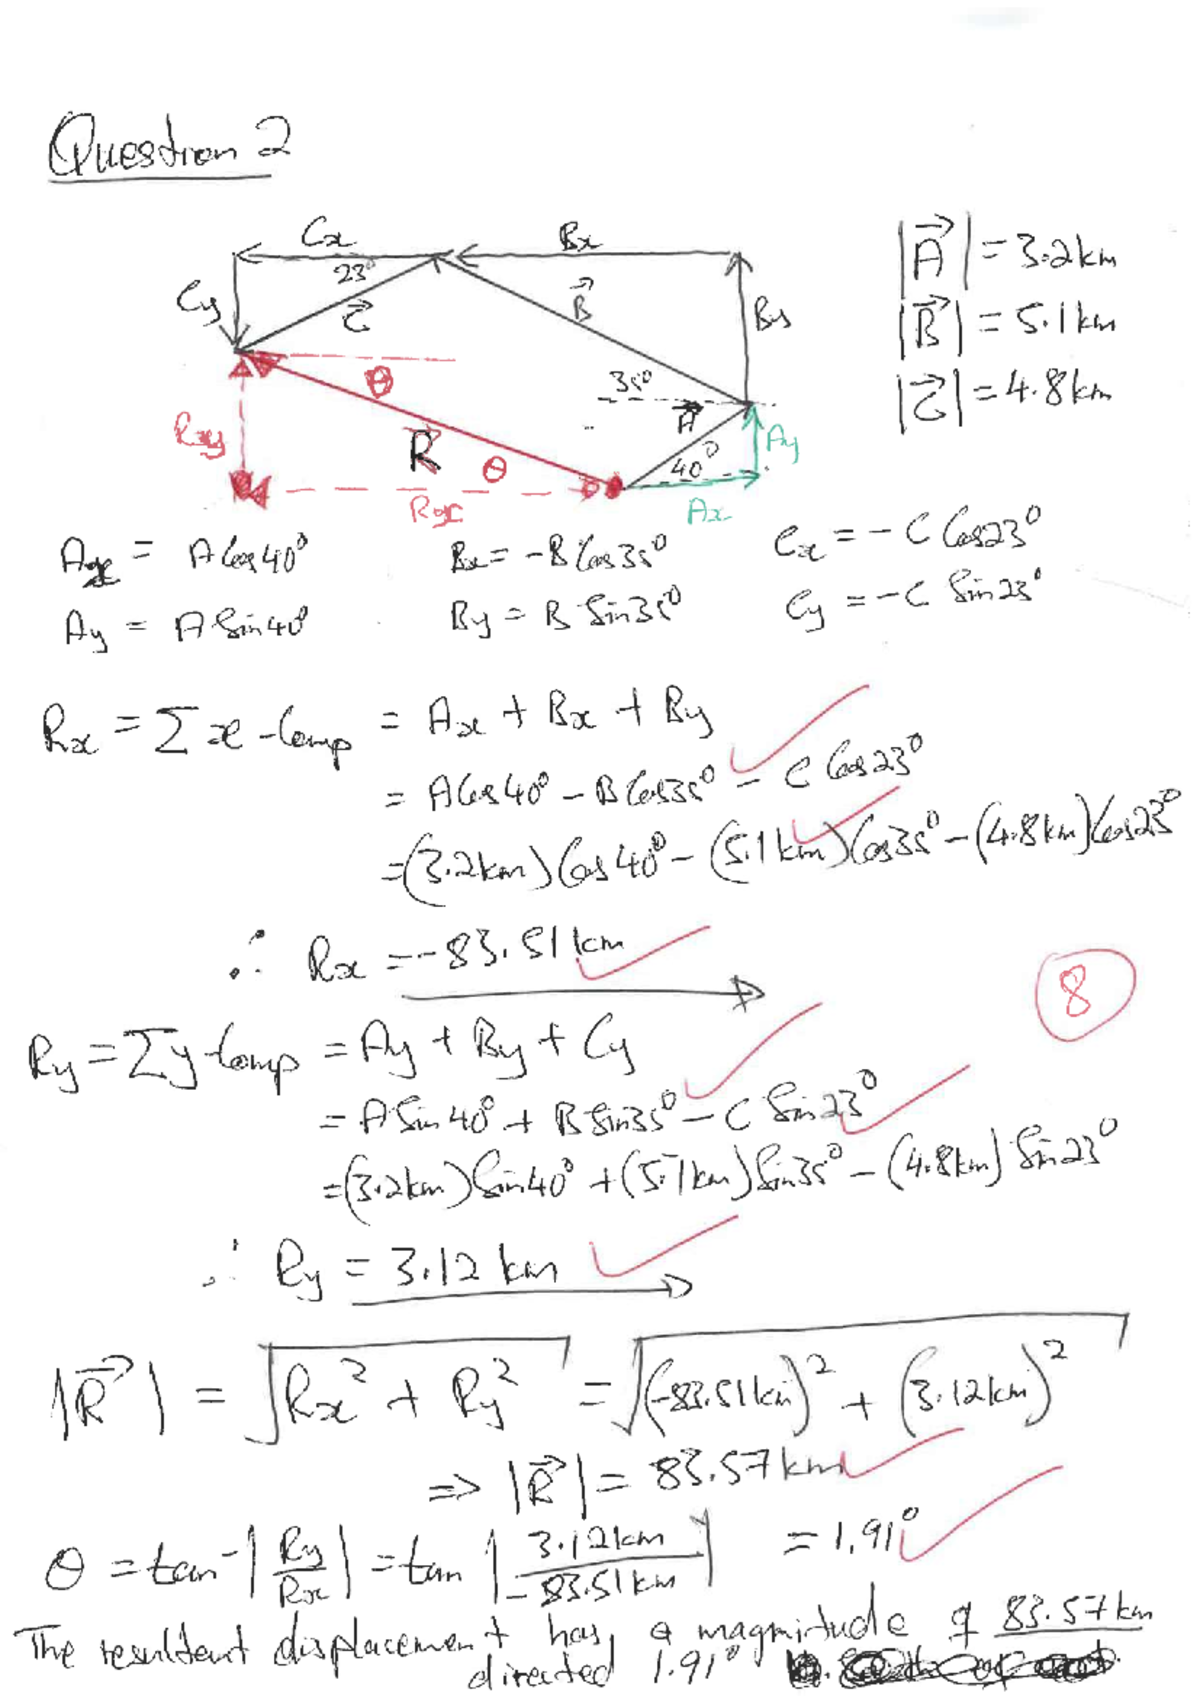 Question 2
Cx
Bx
23°
Cy
C
B
By
|A| = 3.2km
|B| = 5.1km
|C| = 4.8km
θ
35°
A
Ry
R
θ
40°
Ay
Rx
Ax
Ax = A Cos40°
Bx = -B Cos35°
Cx = - C Cos23°
Ay = A Sin40°
By = B Sin35°
Cy = - C Sin23°
Rx = Σ x-Comp = Ax + Bx + By
= A Cos40° - B Cos35° - C Cos23°
= (3.2km) Cos40° - (5.1km) Cos35° - (4.8km) Cos23°
∴ Rx = -83.51 km
8
Ry = Σy-Comp = Ay + By + Cy
= A Sin40° + B Sin35° - C Sin23°
= (3.2km) Sin40° + (5.1km) Sin35° - (4.8km) Sin23°
∴ Ry = 3.12 km
|R| = √Rx² + Ry² = √(-83.51km)² + (3.12km)²
⇒ |R| = 83.57 km
θ = tan⁻|Ry/Rx| = tan |3.12km/-83.51km| = 1.91°
The resultant displacement has a magnitude of 83.57 km
directed 1.91°